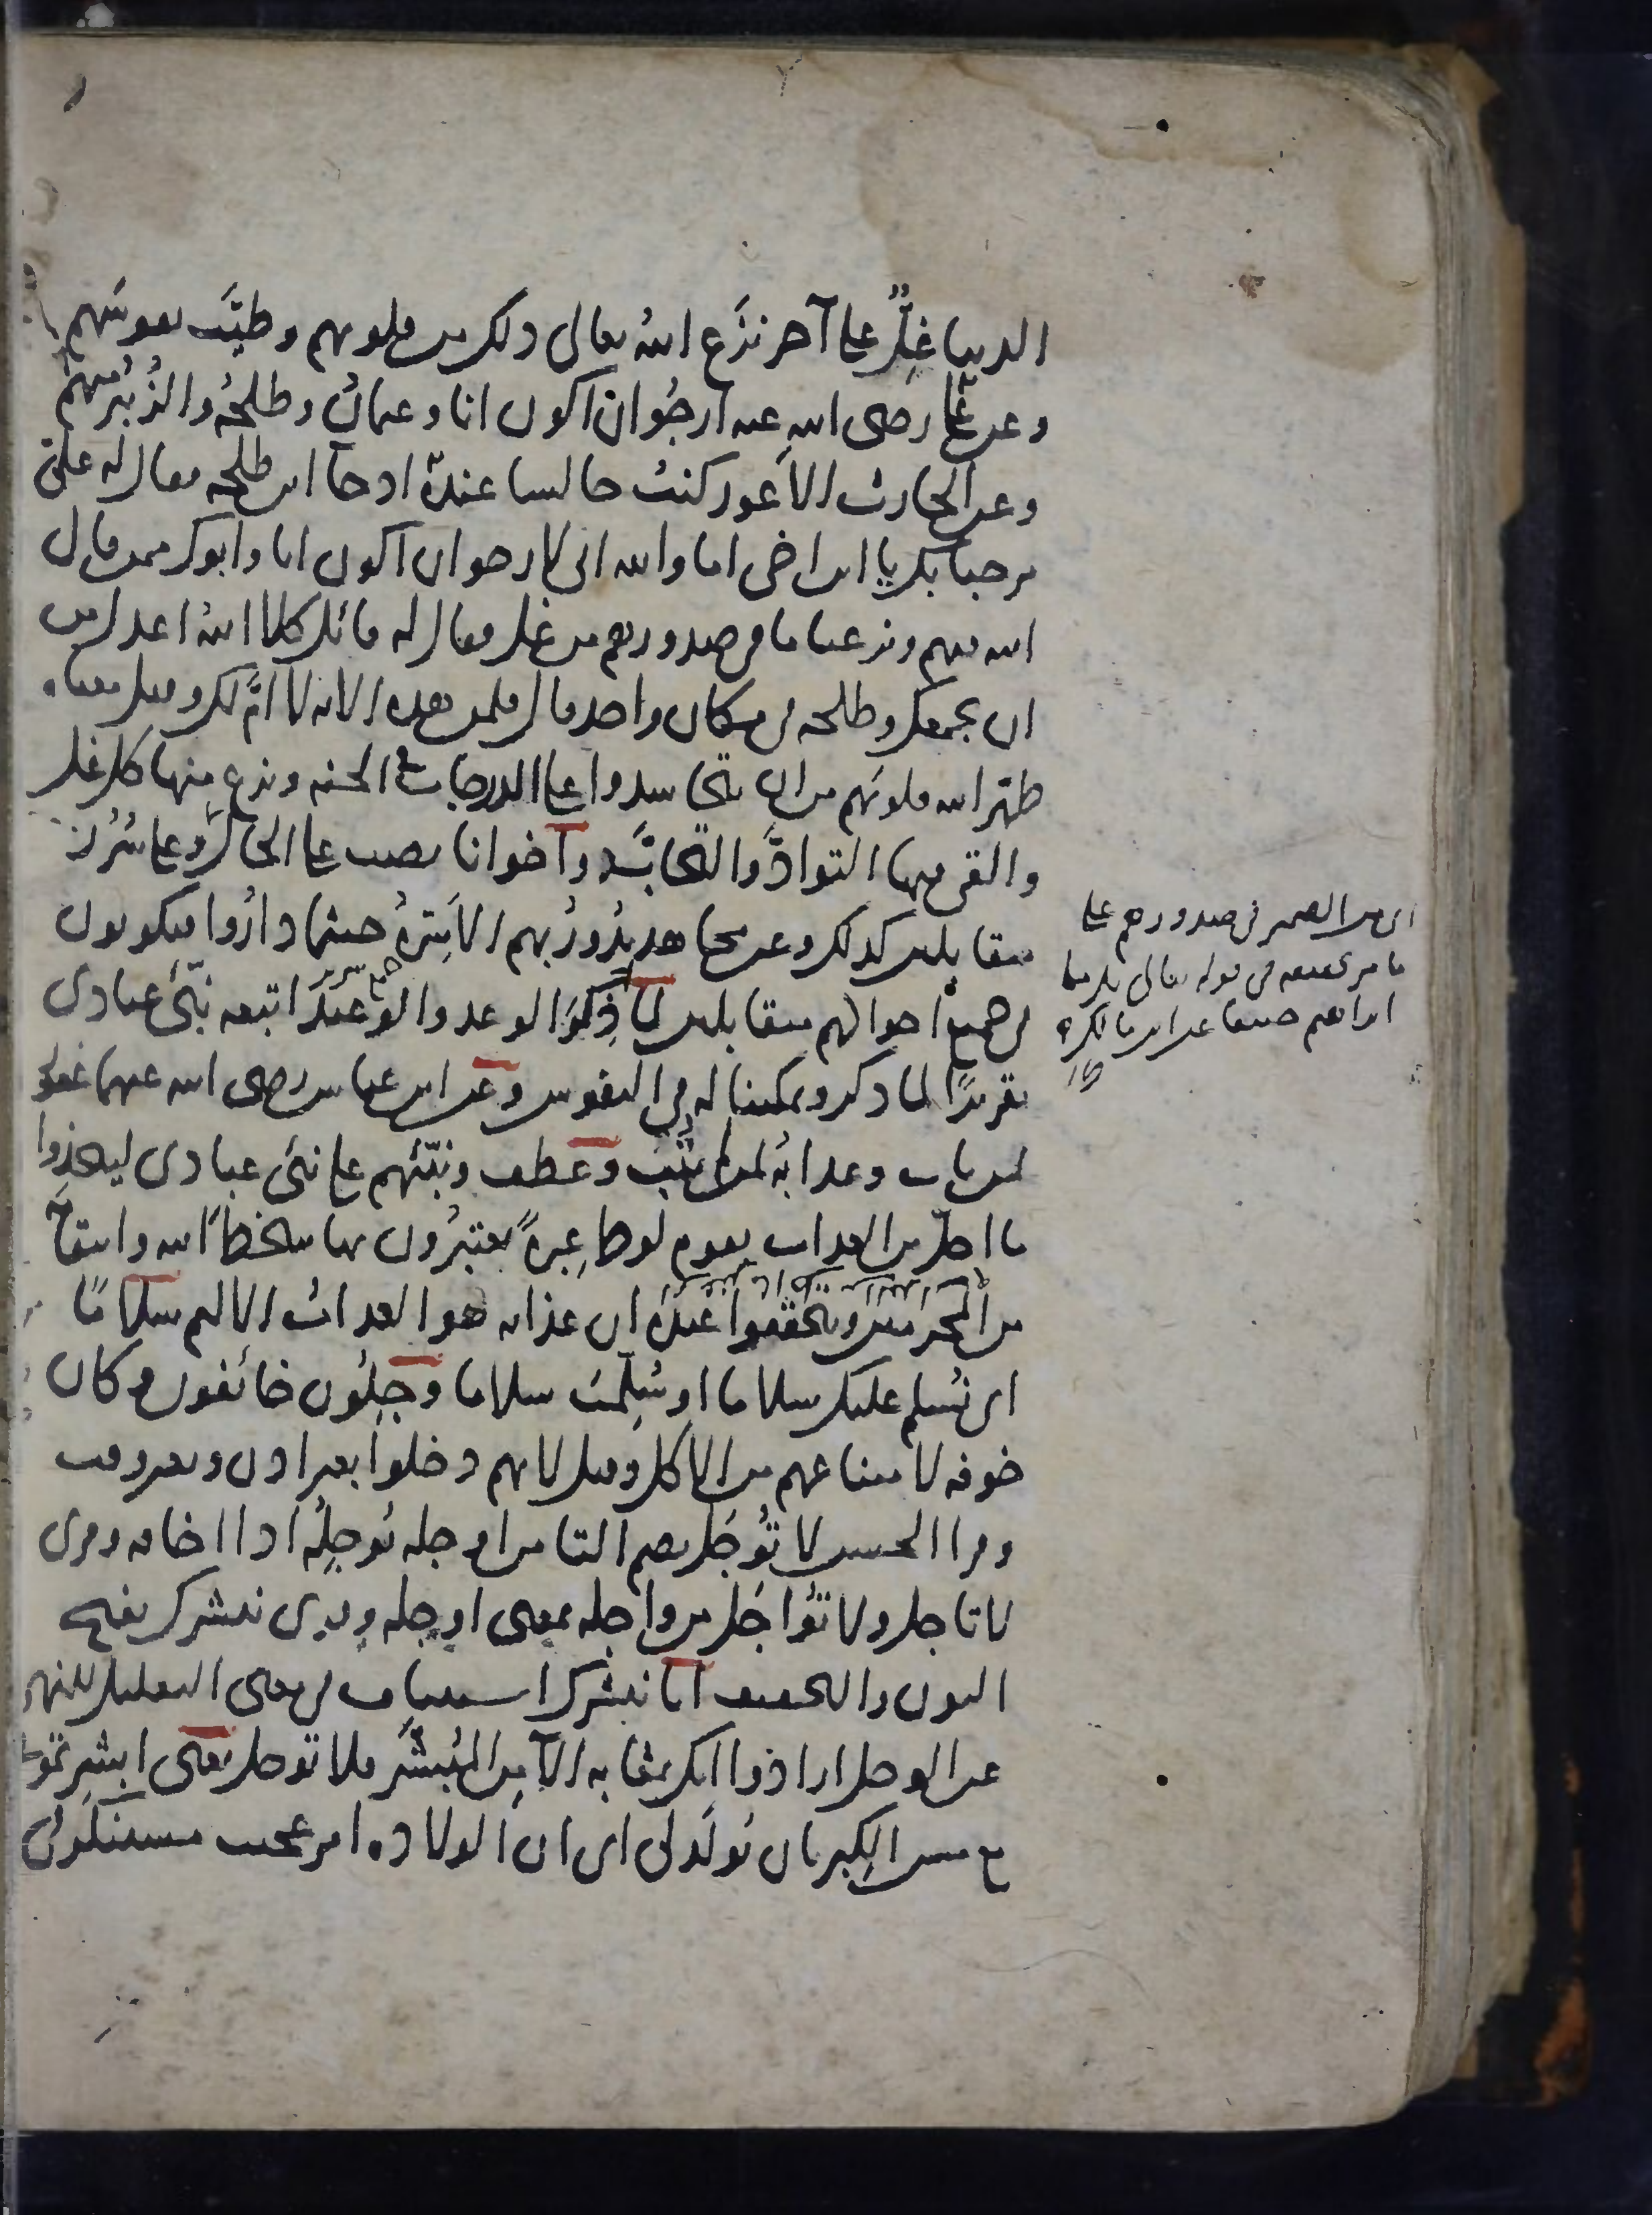 الدنيا غِلٌّ على آخر نزع الله تعالى ذلك من قلوبهم وطيّب نفوسَهم
وعن علي رضى الله عنه ارجُوا ان اكون انا وعثمانُ وطلحةُ والزُبَيْر منهم
وعن الحارث الاعور كنت جالسا عندهُ اذ جا ابن طلحه فقال له عليّ
مرحبا بك يا ابن اخى اما والله انى لارجوا ان اكون انا وابوك ممن قال
الله فيهم ونزعنا ما فى صدورهم من غل فقال له قائل كلا اللهُ اعدل من
ان يجمعك وطلحه فى مكان واحد قال فلمن هذه الايه لا اُمَّ لك وقيل معناه
طهّر الله قلوبَهم من ان يتحاسدوا على الدرجات فى الجنه ونزع منها كل غل
والقى فيها التوادَّ والتحابَّ واخوانا نصب على الحال وعلى سُرُر
متقابلين كذلك وعن مجاهد تَدُورُ بهم الاَسِرّةُ حيثما دارُوا فيكونون
فى جميع احوالهم متقابلين لما ذِكرَ الوعد والوعيد اتبعه نبّئ عبادى
تقريرًا لما ذكر وتمكينا له فى النفوس وعن ابن عباس رضى الله عنهما غفور
لمن تاب وعذابُه لمن لم يَتُبْ وعطف ونبّئهم على نبئ عبادى ليتخِذُوا
ما احلّ من العذاب بقوم لوط عِبرةً يعتبِرُون بها سَخَطَ الله وانتقامَه
من المجرمين ويتحقّقوا عندَه ان عذابه هو العذابُ الاليم سلامًا
اى نُسلِم عليك سلاما او سُلِّمتَ سلاما وَجِلُون خائفون وكان
خوفه لامتناعهم من الاكل وقيل لانهم دخلوا بغير اذن وبغير وقت
وقرا الحسن لا تُوجَل بضم التا من اوجله يُوجِلُه اذا اخافه وقرى
لا تاجل ولا تُواجَل من واجله بمعنى اوجله وقرى نبشرك بفتح
النون والتخفيف انا نبشرك استيناف فى معنى التعليل للنهى
عن الوجل ارادُوا انك بمثابه الآمِن المُبَشَّر فلا توجل يعنى ابشرتمونى
مع مس الكِبر بان يُولَد لى اى ان الولاده امر عجيب مستنكر فى
اى من الضمير فى صدورهم على
ما مر تحقيقه فى قوله تعالى بل ملة
ابراهيم حنيفا عن ابن مالك